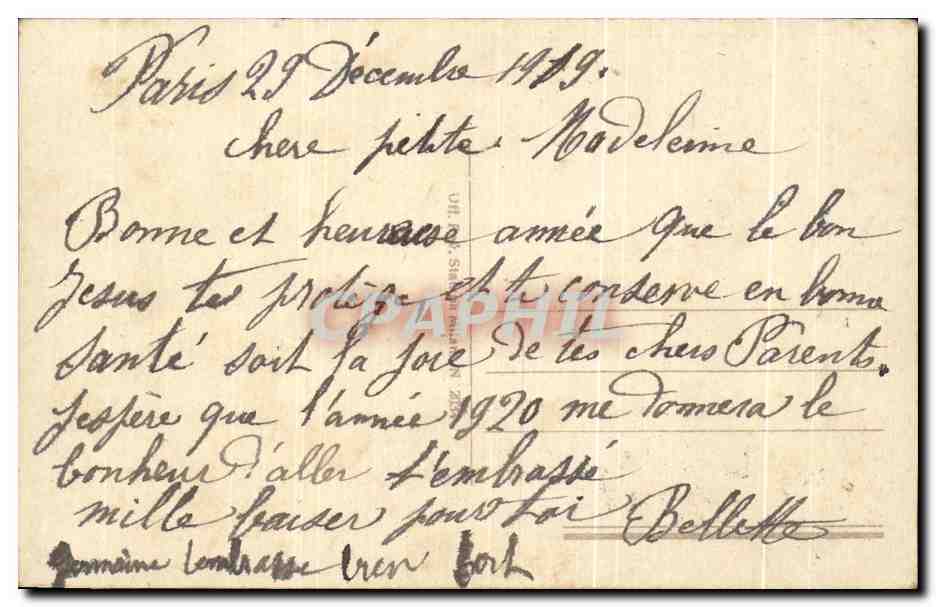 Paris 29 Décembre 1919.
chere petite Madeleine
Bonne et heureuse année que le bon
Jesus te protège et te conserve en bonne
santé soit la joie de tes chers Parents.
j'espère que l'année 1920 me donnera le
bonheur d'aller t'embrassé
mille baiser pour toi Bellette
Germaine t'embrasse bien fort
CPAPHIL